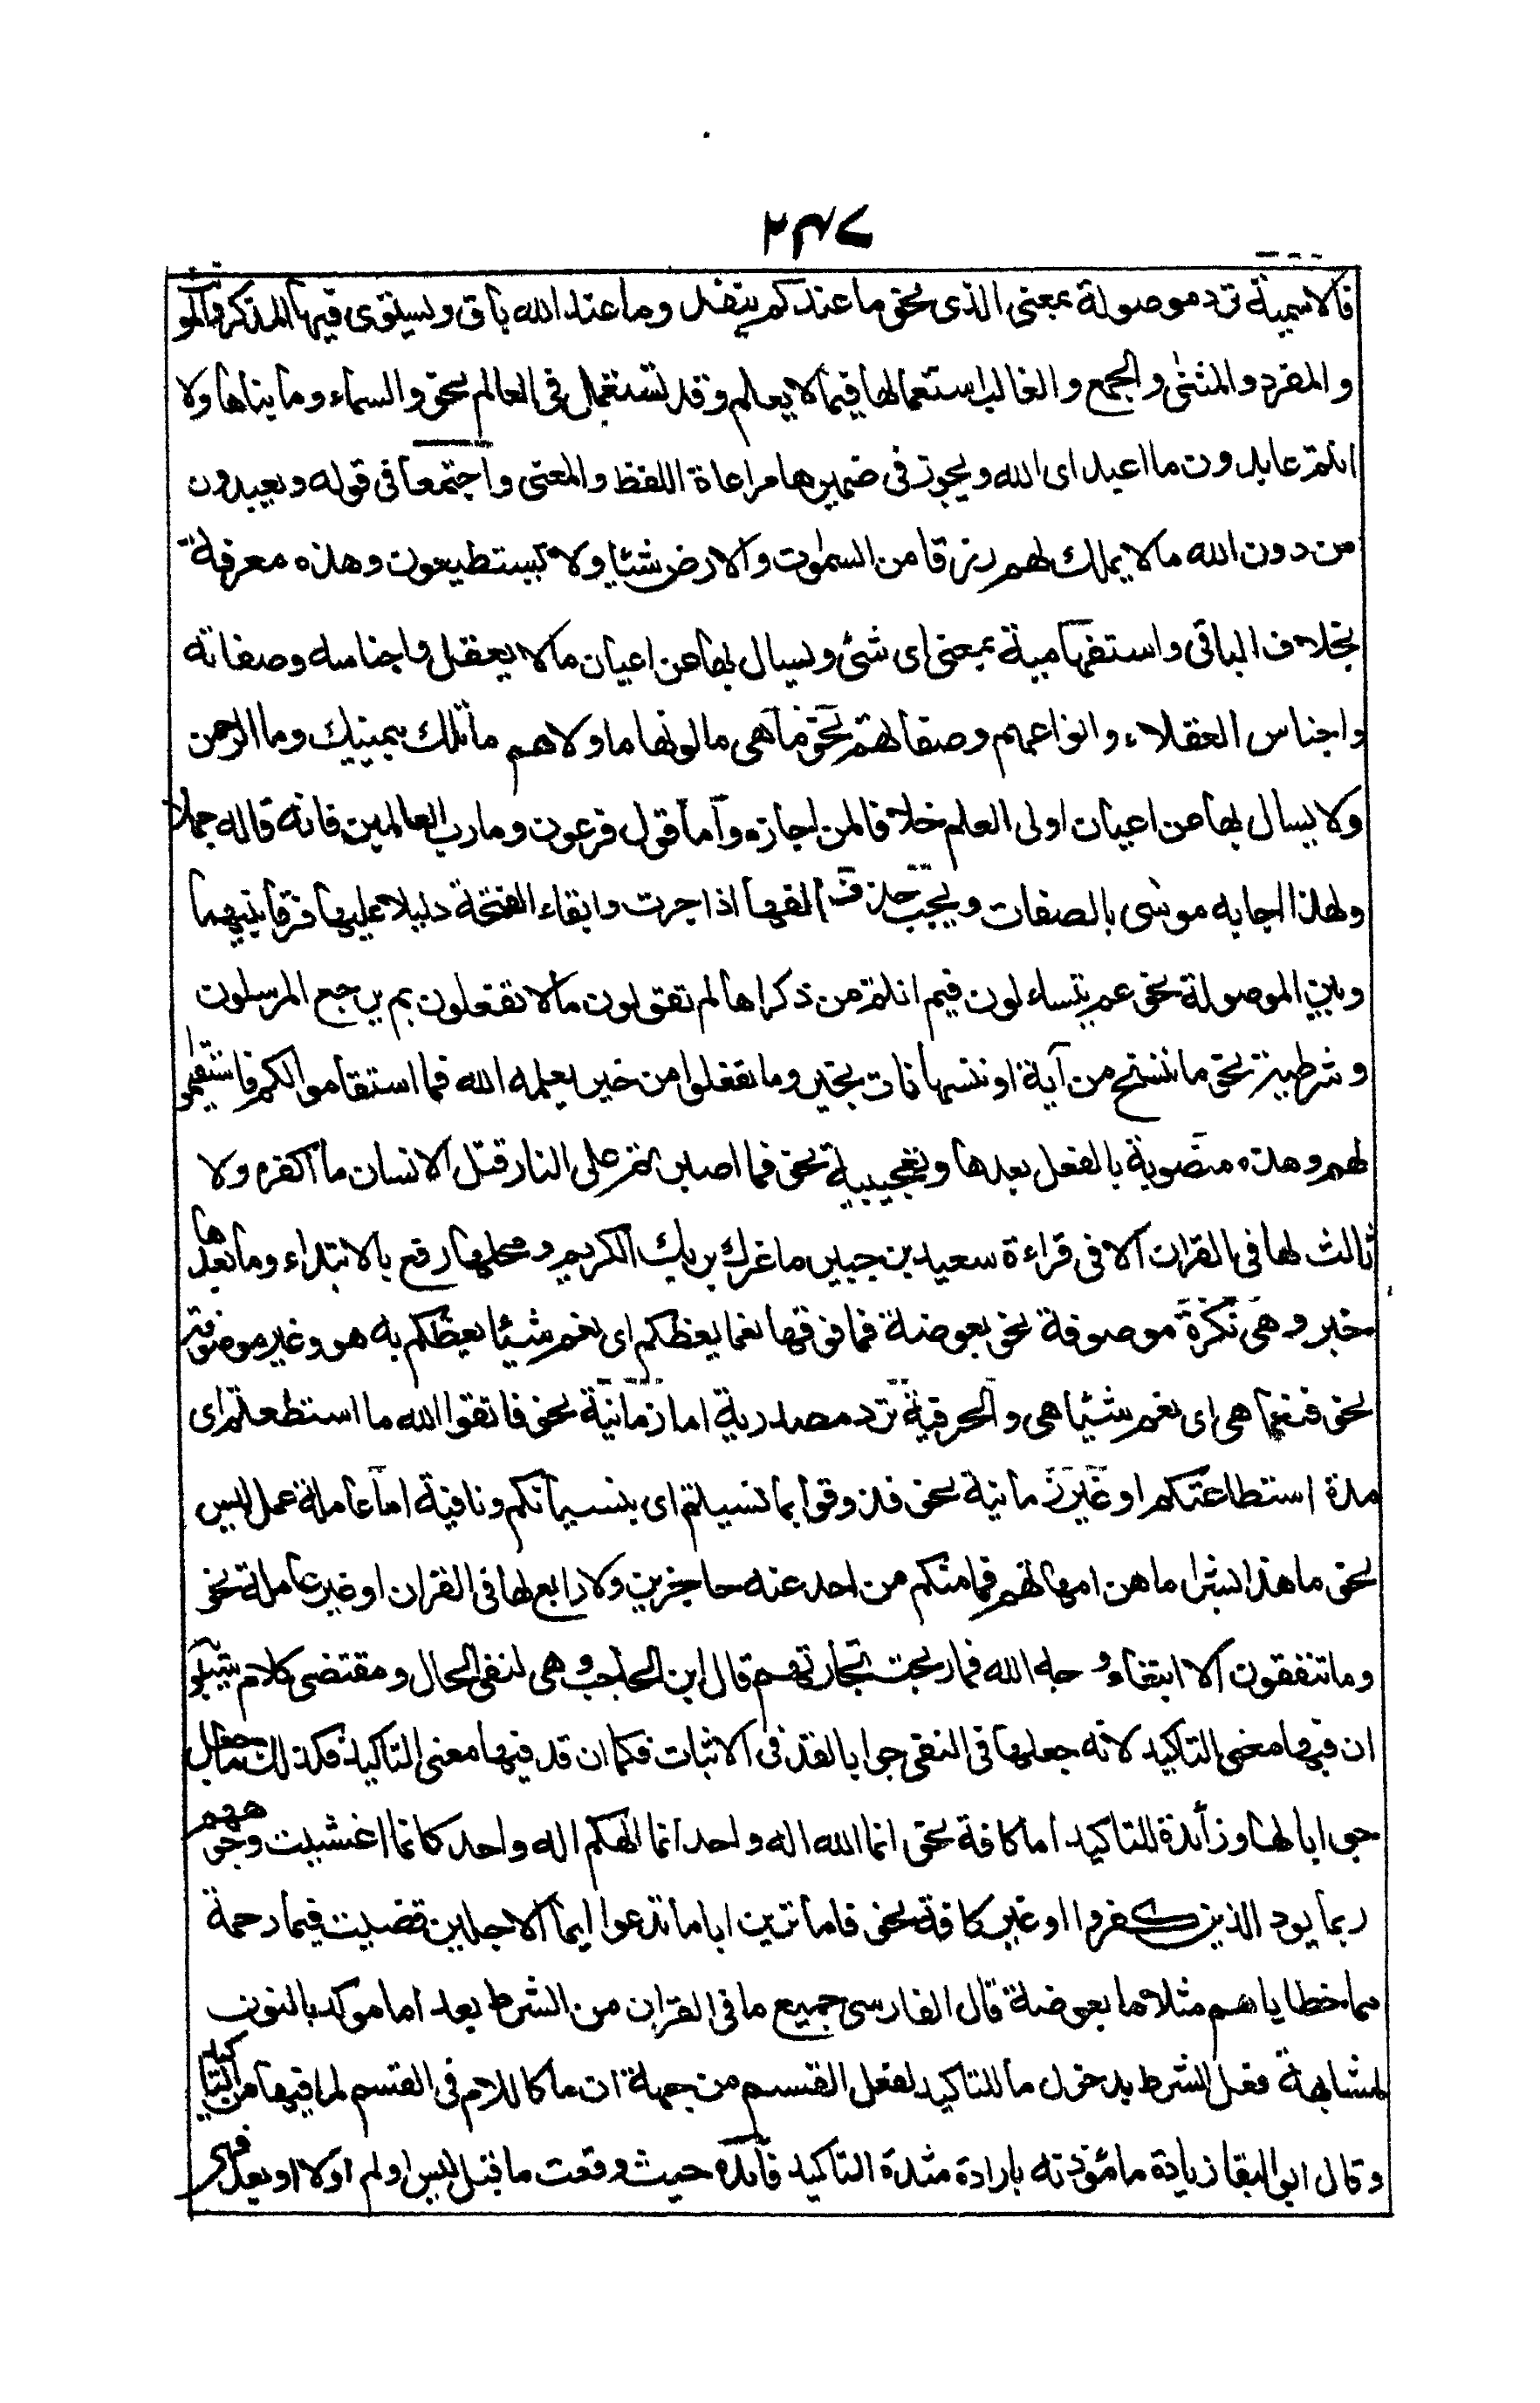 ٢٤٧
فالاسمية ترد موصولة بمعنى الذى نحو ما عندكم ينفد وما عند الله باق ويستوى فيها المذكر والمو
والمفرد والمثنى والجمع والغالب استعمالها فيما لا يعلم وقد تستعمل فى العالم نحو والسماء وما بناها ولا
انتم عابدون ما اعبد اى الله ويجوز فى ضميرها مراعاة اللفظ والمعنى واجتمعا فى قوله ويعبدون
من دون الله ما لا يملك لهم رزقا من السموت والارض شئيا ولا يستطيعون وهذه معرفة
بخلاف الباقى واستفهامية بمعنى اى شئ ويسال بها عن اعيان ما لا يعقل واجناسه وصفاته
واجناس العقلاء وانواعهم وصفاتهم نحو ما هى ما لونها ما ولاهم ما تلك بيمينك وما الرحمن
ولا يسال بها عن اعيان اولى العلم خلافا لمن اجازه وأما قول فرعون وما رب العالمين فانه قاله جهلا
ولهذا اجابه موسى بالصفات ويجب حذف الفها اذا جرت وابقاء الفتحة دليلا عليها فرقا بينهما
وبين الموصولة نحو عم يتساءلون فيم انت من ذكراها لم تقولون ما لا تفعلون بم يرجع المرسلون
وشرطية نحو ما ننسخ من آية او ننسها نات بخير وما تفعلوا من خير يعلمه الله فما استقاموا لكم فاستقيموا
لهم وهذه منصوبة بالفعل بعدها وتعجيبية نحو فما اصبرهم على النار قتل الانسان ما اكفره ولا
ثالث لها فى القران الا فى قراءة سعيد بن جبير ما غرك بربك الكريم ومحلها رفع بالابتداء وما بعدها
خبر وهى نكرة موصوفة نحو بعوضة فما فوقها نعما يعظكم اى نعم شيئا يعظكم به هو وغير موصوفة
نحو فنعما هى اى نعم شيئا هى والحرفية ترد مصدرية اما زمانية نحو فاتقوا الله ما استطعتم اى
مدة استطاعتكم او غير زمانية نحو فذوقوا بما نسيتم اى بنسيانكم ونافية اما عاملة عمل ليس
نحو ما هذا بشرا ما هن امهاتهم فما منكم من احد عنه حاجزين ولا رابع لها فى القران او غير عاملة نحو
وما تنفقون الا ابتغاء وجه الله فما ربحت تجارتهم قال ابن الحاجب وهى لنفى الحال ومقتضى كلام سيبويه
ان فيها معنى التاكيد لانه جعلها فى النفى جوابا لقد فى الاثبات فكما ان قد فيها معنى التاكيد فكذلك ما جعل
جوابا لها وزائدة للتاكيد اما كافة نحو انما الله اله واحد انما الهكم اله واحد كانما اغشيت وجوههم
ربما يود الذين كفروا او غير كافة نحو فاما ترين اياما تدعوا ايما الاجلين قضيت فبما رحمة
مما خطاياهم مثلا ما بعوضة قال الفارسى جميع ما فى القران من الشرط بعد اما موكد بالنون
لمشابهة فعل الشرط بدخول ما للتاكيد لفعل القسم من جهة ان ما كاللام فى القسم لما فيها من التاكيد
وقال ابو البقا زيادة ما مؤذنة بارادة شدة التاكيد فائدة حيث وقعت ما قبل ليس او لم او لا او بعد